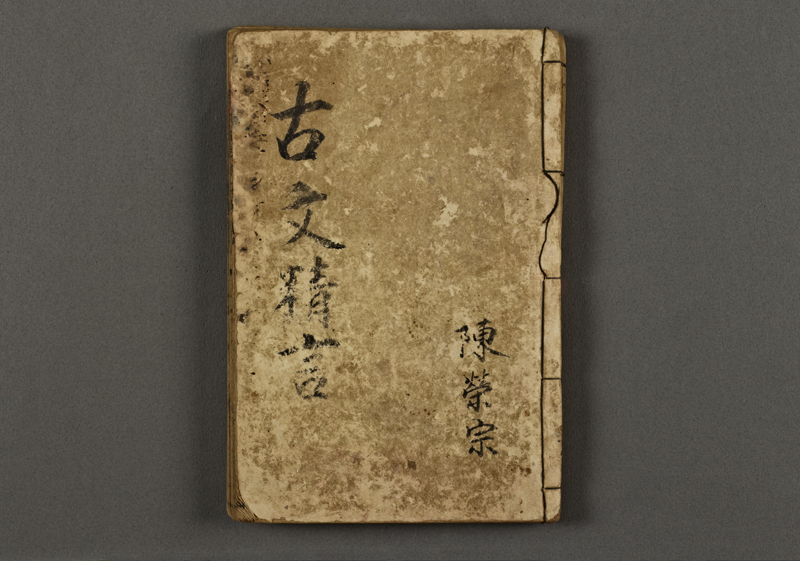 陳榮宗
古文精言